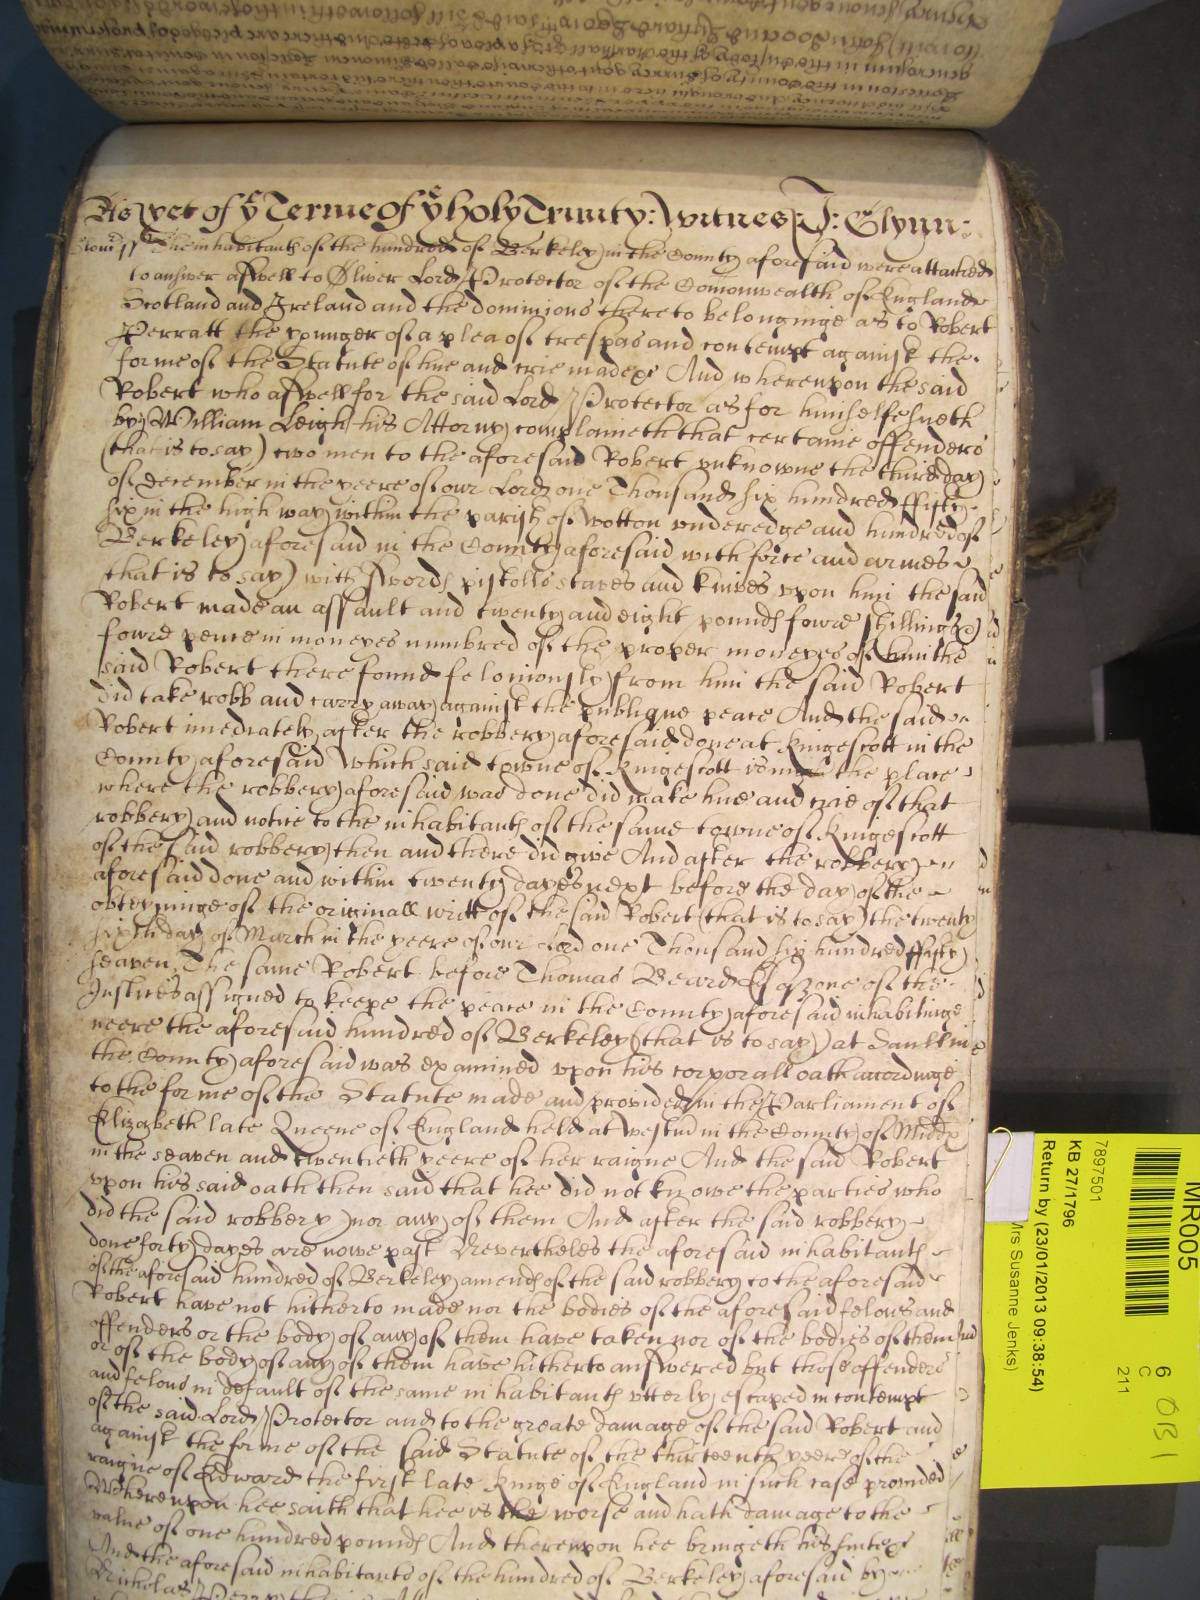 As yet of ye Terme of ye holy Trinity: Witnes J: Glynn:
The inhabitants of the hundred of Berkeley in the County aforesaid were attached
to answer aswell to Oliver Lord Protector of the Comonwealth of England
Scotland and Ireland and the dominions thereto belonginge as to Robert
Perratt the younger of a plea of trespas and contempt against the
forme of the Statute of hue and crie made &c And whereupon the said
Robert who aswell for the said Lord Protector as for himselfe sueth
by William Leigh his Attorny complaineth that certaine offenders
(that is to say) two men to the aforesaid Robert unknowne the third day
of december in the yeere of our Lord one Thousand six hundred ffifty
six in the high way within the parish of Wotton underedge and hundred of
Berkeley aforesaid in the County aforesaid with force and armes
that is to say) with swords pistolls staves and knives upon him the said
Robert made an assault and twenty and eight pounds fowre shillings &
fowre pence in moneyes numbred of the proper moneyes of him the
said Robert there found feloniously from him the said Robert
did take robb and carry away against the publique peace And the said
Robert imediately after the robbery aforesaid done at Kingescott in the
County aforesaid Which said towne of Kingescott is nigh the place
where the robbery aforesaid was done did make hue and crie of that
robbery and notice to the inhabitants of the same towne of Kingescott
of the said robbery then and there did give And after the robbery
aforesaid done and within twenty dayes next before the day of the
obteyninge of the originall writt of the said Robert (that is to say) the twenty
sixth day of March in the yeere of our Lord one Thousand six hundred ffifty
seaven The same Robert before Thomas Beard Esqr one of the
Justices assigned to keepe the peace in the County aforesaid inhabitinge
neere the aforesaid hundred of Berkeley (that is to say) at in
the County aforesaid was examined upon his corporall oath accordinge
to the forme of the Statute made and provided in the Parliament of
Elizabeth late Queene of England held at Westm in the County of Midd
in the seaven and twentieth yeere of her raigne And the said Robert
upon his said oath then said that hee did not knowe the parties who
did the said robbery nor any of them And after the said robbery
done forty dayes are nowe past Neverthelés the aforesaid inhabitants
of the aforesaid hundred of Berkeley amends of the said robbery to the aforesaid
Robert have not hitherto made nor the bodies of the aforesaid felons and
offenders or the body of any of them have taken nor of the bodies of them
or of the body of any of them have hitherto answered but those offenders
and felons in default of the same inhabitants utterly escaped in contempt
of the said Lord Protector and to the greate damage of the said Robert and
against the forme of the said Statute of the thirteenth yeere of the
raigne of Edward the first late Kinge of England in such case provided
Whereupon hee saith that hee is the worse and hath damage to the
value of one hundred pounds And thereupon hee bringeth his suite &c
And the aforesaid inhabitants of the hundred of Berkeley aforesaid by
Nicholas Perry
MR005
7897501
KB 27/1796
Return by (23/01/2013 09:38:54)
Mrs Susanne Jenks)
6
C
211